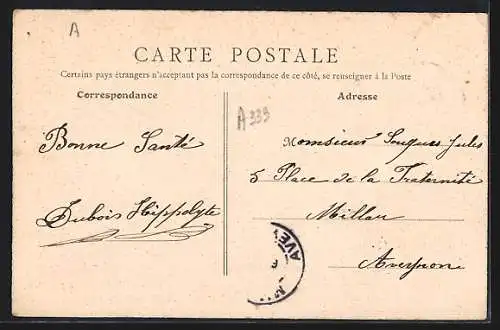 A
CARTE POSTALE
Certains pays étrangers n'acceptant pas la correspondance de ce côté, se renseigner à la Poste
Correspondance
Adresse
A339
Bonne Santé
Dubois Hippolyte
Monsieur Jules
5 Place de la Fraternité
Millau
Aveyron
AVE